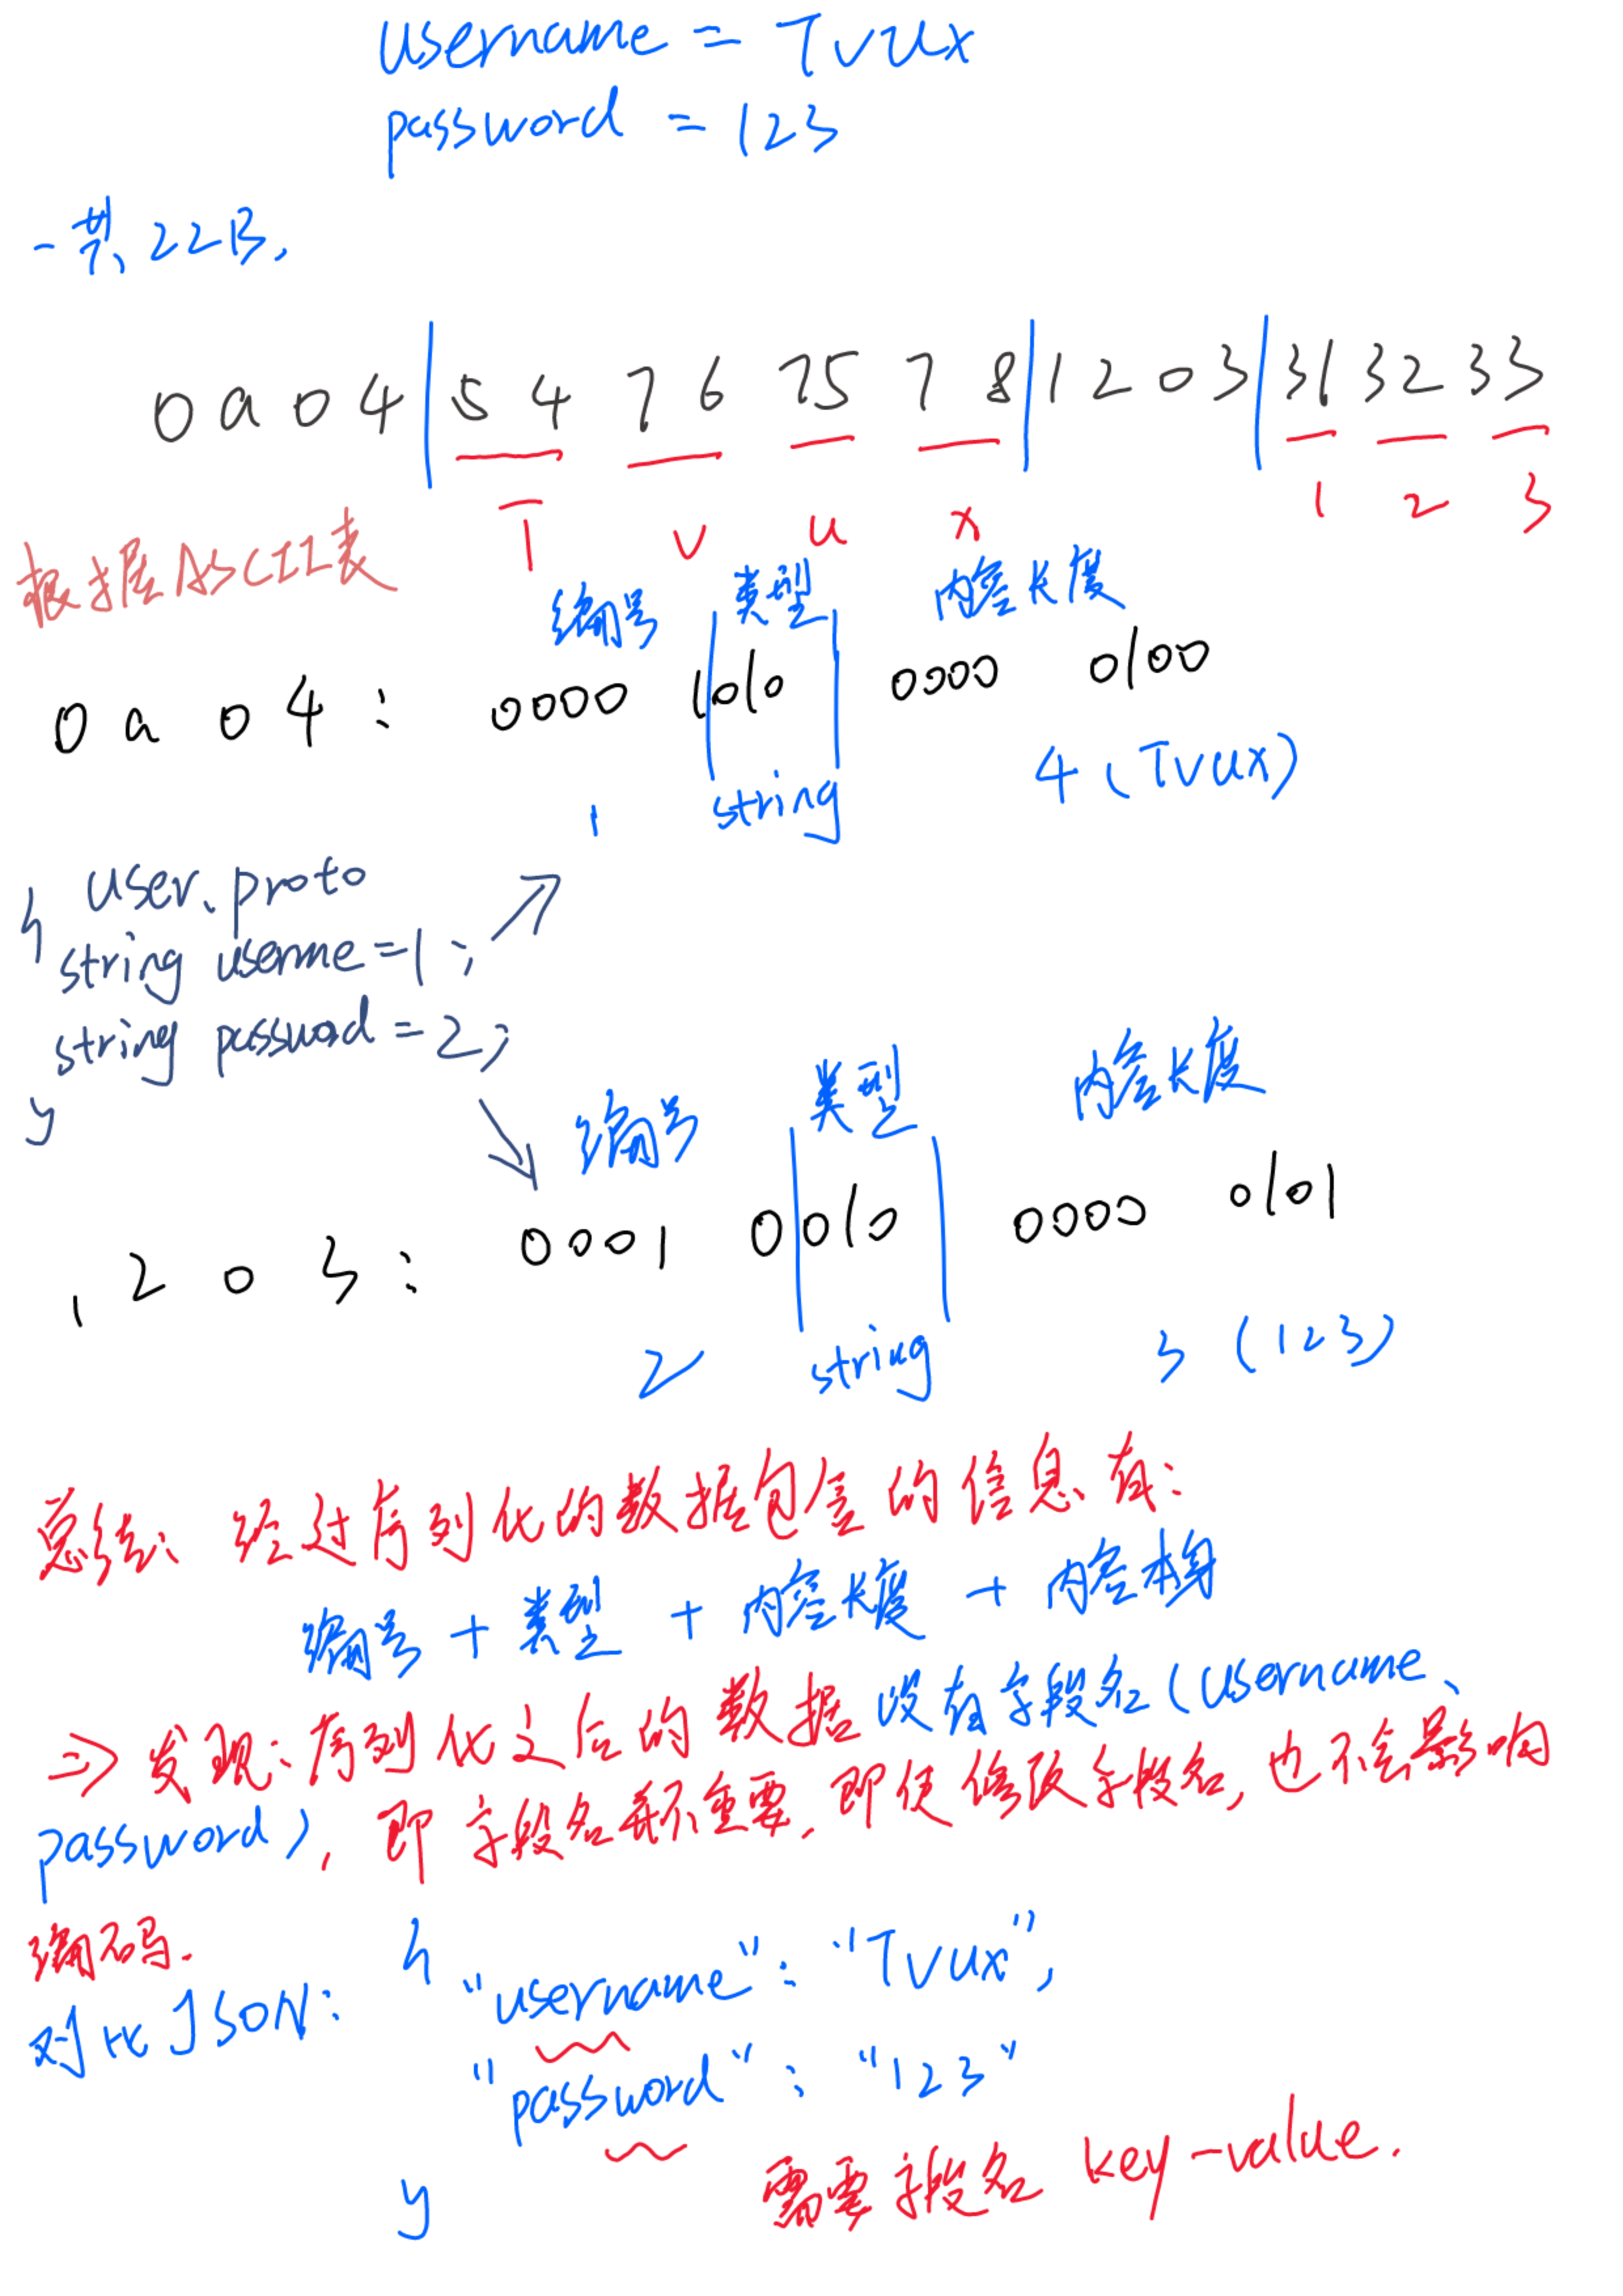 username = Tvux
password = 123
一共 22B,
0a04|54 76 75 78|1203|31 32 33
T v u x 1 2 3
根据ASCII表
编号 类型 内容长度
0a04: 0000 1|010| 0000 0100
1 string 4 (Tvux)
user.proto
{ string userme=1;
string password=2;
}
编号 类型 内容长度
1203: 0001 0|010| 0000 0101
2 string 3 (123)
总结: 经过序列化的数据包含的信息有:
编号 + 类型 + 内容长度 + 内容本身
=> 发现: 序列化之后的数据没有字段名(username、
password), 即字段名并不重要, 即使修改字段名, 也不会影响
编码.
对比JSON: {
"username": "Tvux",
"password": "123"
}
需要字段名 key-value.